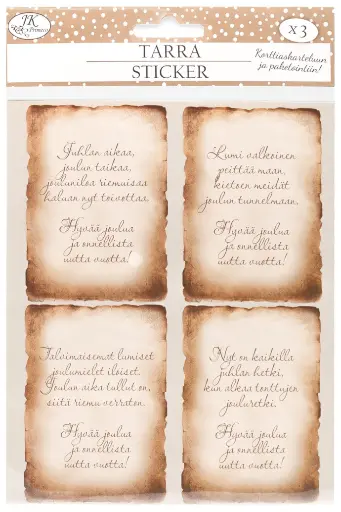 JK
x3
TARRA
STICKER
Korttiaskarteluun
ja paketointiin!
Juhlan aikaa,
joulun taikaa,
jouluniloa riemuisaa
haluan nyt toivottaa.
Hyvää joulua
ja onnellista
uutta vuotta!
Lumi valkoinen
peittää maan,
kietoen meidät
joulun tunnelmaan.
Hyvää joulua
ja onnellista
uutta vuotta!
Talvimaisemat lumiset
joulumielet iloiset.
Joulun aika tullut on,
siitä riemu verraton.
Hyvää joulua
ja onnellista
uutta vuotta!
Nyt on kaikilla
juhlan hetki,
kun alkaa tonttujen
jouluretki.
Hyvää joulua
ja onnellista
uutta vuotta!